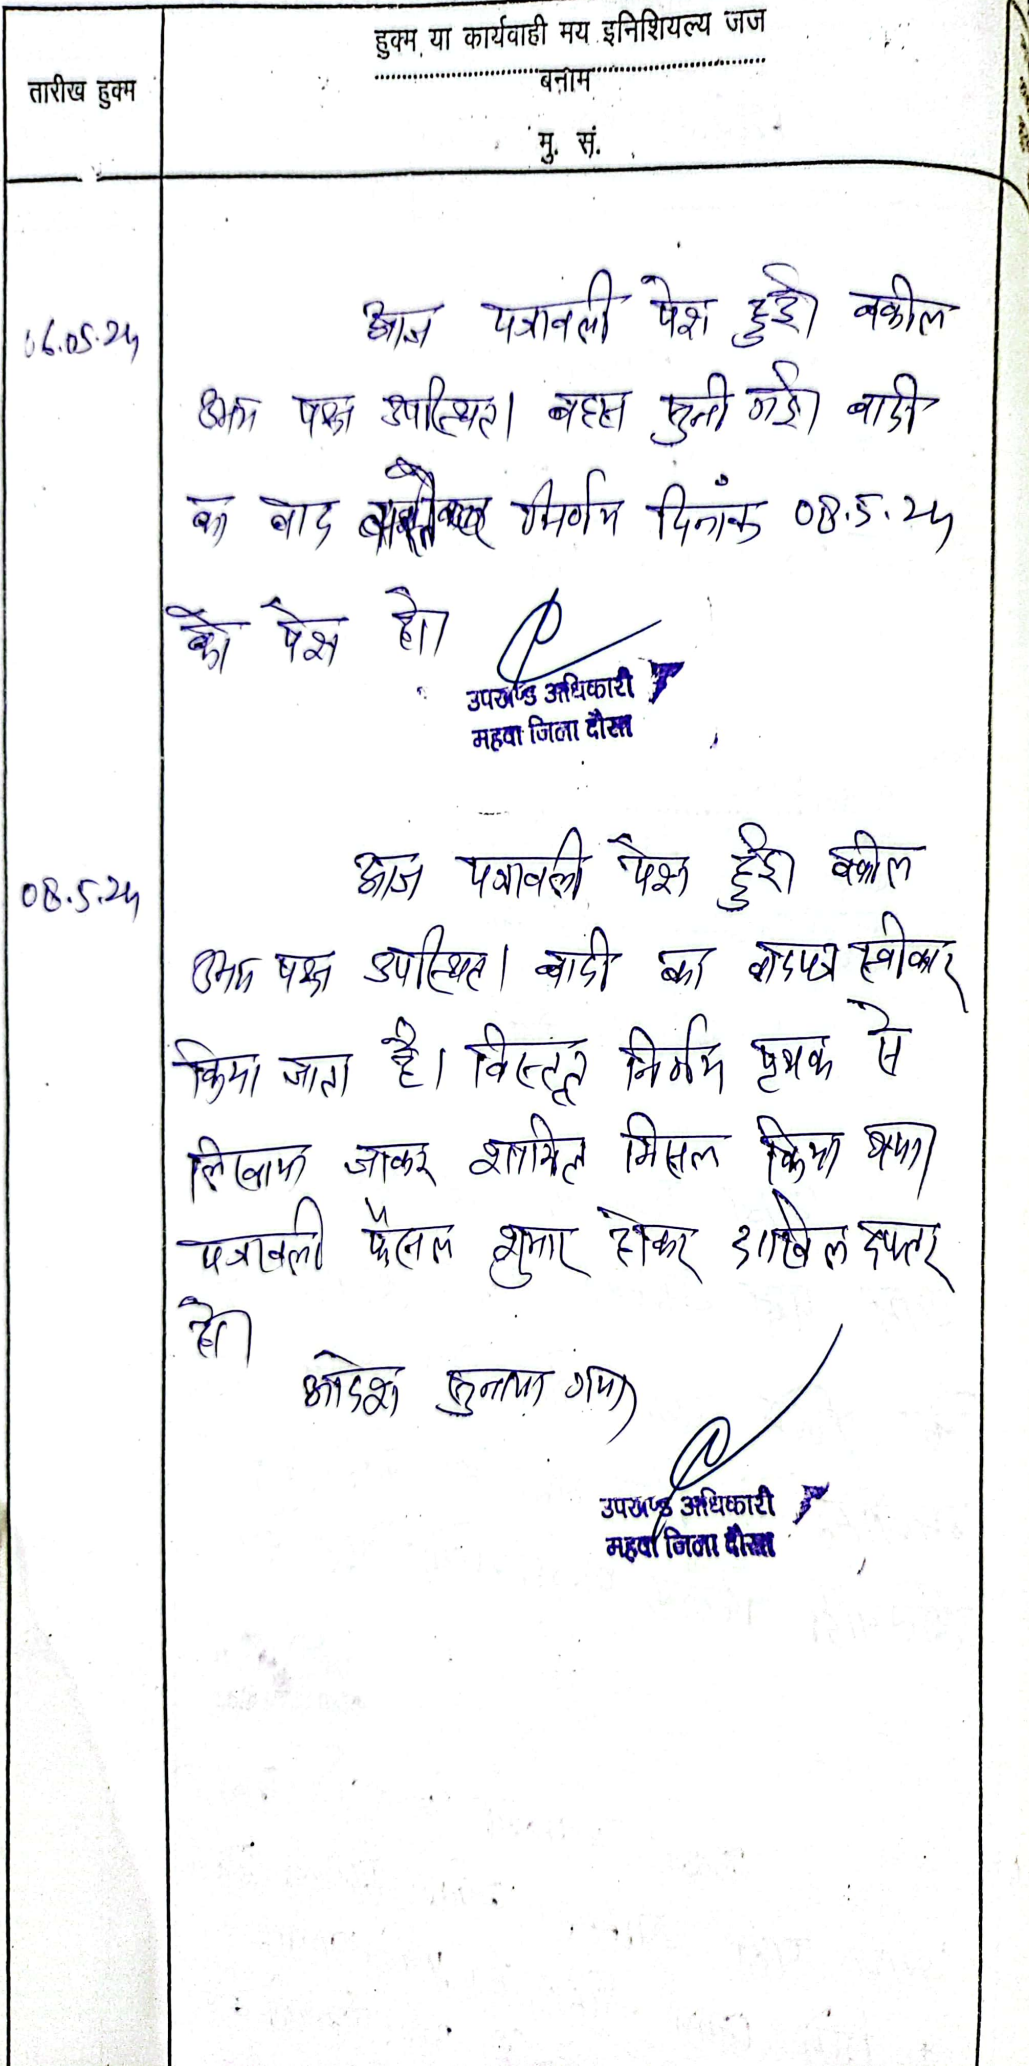 हुक्म या कार्यवाही मय इनिशियल्य जज
तारीख हुक्म
बनाम
मु. सं.
06.05.24
आज पत्रावली पेश हुई। वकील
उभय पक्ष उपस्थित। बहस सुनी गई। वादी
का वाद वास्ते निर्णय दिनांक 08.5.24
को पेश हो।
उपखण्ड अधिकारी
महवा जिला दौसा
08.5.24
आज पत्रावली पेश हुई। वकील
उभय पक्ष उपस्थित। वादी का वादपत्र स्वीकार
किया जाता है। विस्तृत निर्णय पृथक से
लिखाया जाकर शामिल मिसल किया गया।
पत्रावली फैसल शुमार होकर दाखिल दफ्तर
हो।
आदेश सुनाया गया।
उपखण्ड अधिकारी
महवा जिला दौसा